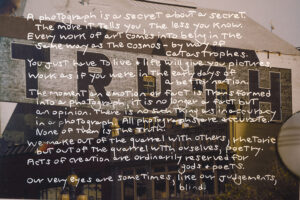 A photograph is a secret about a secret.
The more it tells you, the less you know.
Every work of art comes into being in the
same way as the cosmos - by way of
catastrophes.
You just have to live & life will give you pictures.
Work as if you were in the early days of
a better nation.
The moment an emotion or fact is transformed
into a photograph, it is no longer a fact but
an opinion. There is no such thing as inaccuracy
in a photograph. All photographs are accurate.
None of them is the truth.
We make out of the quarrel with others, rhetoric
but out of the quarrel with ourselves, poetry.
Acts of creation are ordinarily reserved for
gods & poets.
Our very eyes are sometimes, like our judgements,
blind.
TRUTH